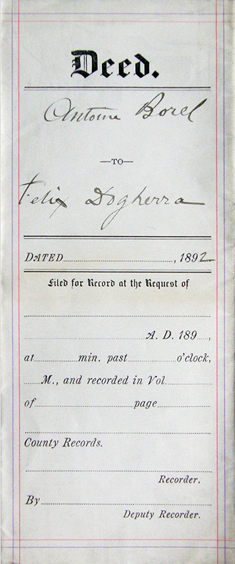 Deed.
Antoine Borel
—TO—
Felix Dogherra
DATED , 1892
Filed for Record at the Request of
A. D. 189 ,
at min. past o'clock,
M., and recorded in Vol.
of page
County Records.
Recorder.
By
Deputy Recorder.